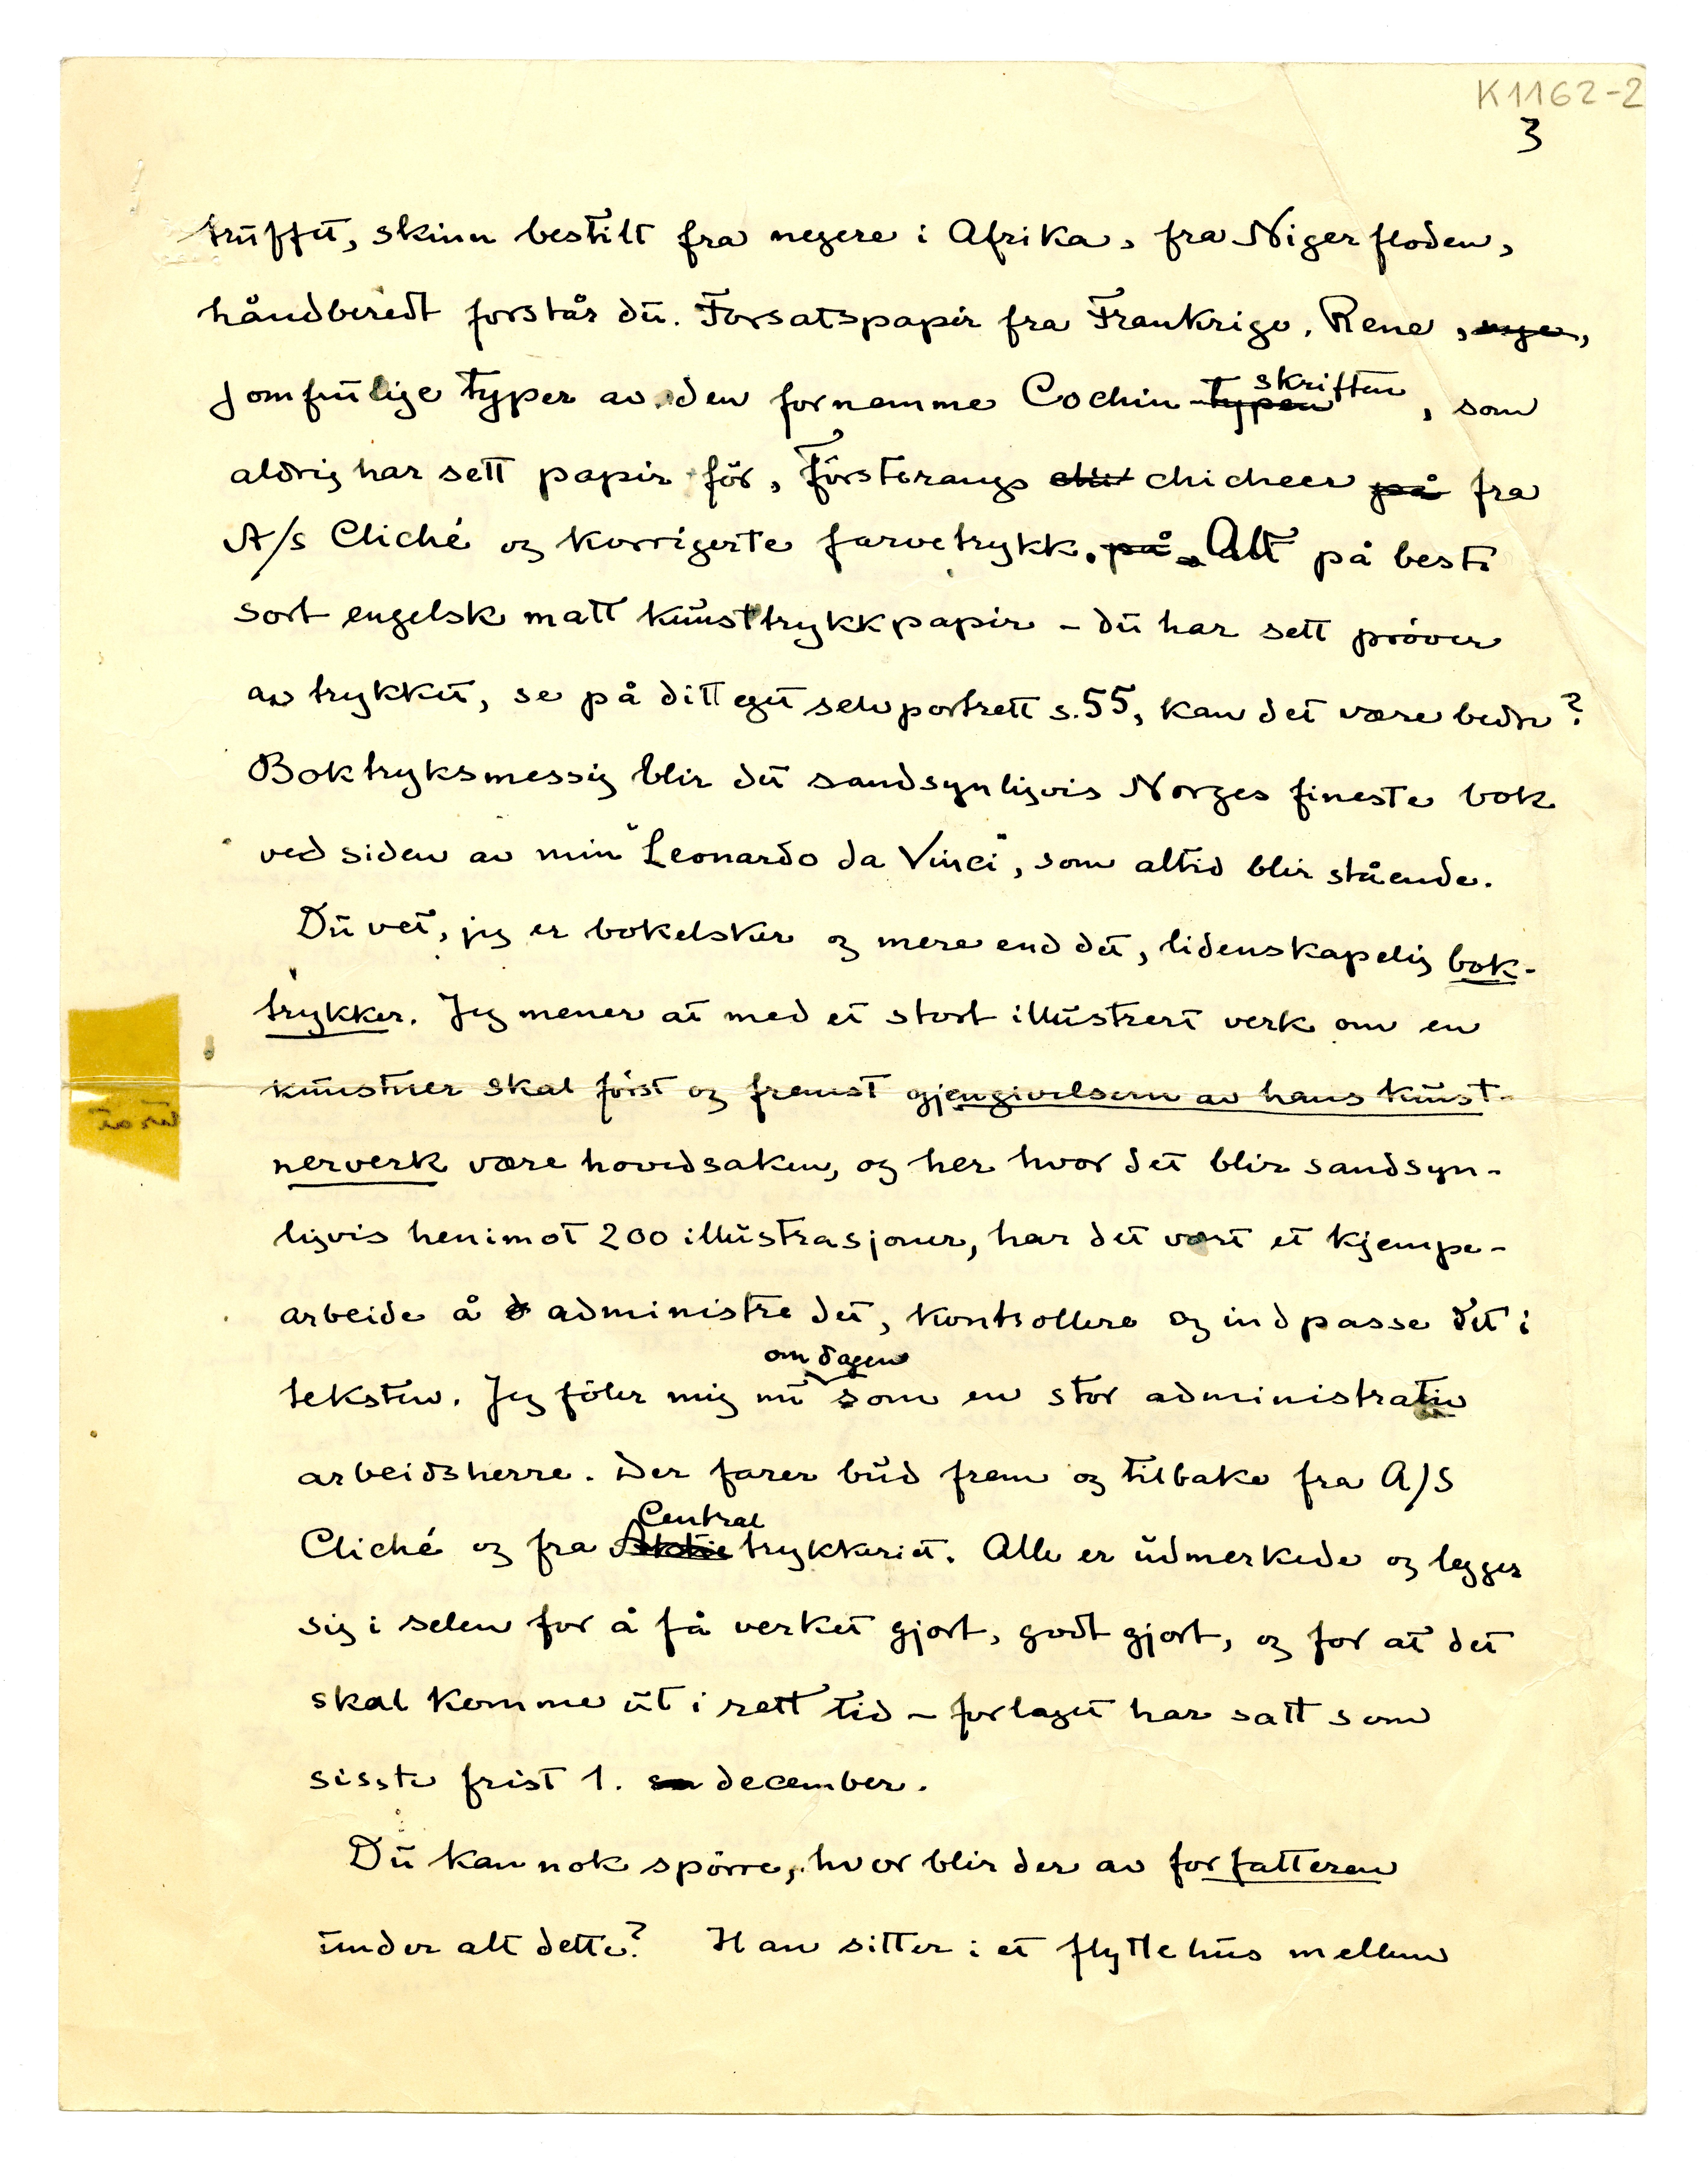 K1162-2
3
truffet, skinn bestilt fra negere i Afrika, fra Nigerfloden,
håndberedt forstår du. Forsatspapir fra Frankrige. Rene, nye,
jomfrulige typer av den fornemme Cochin-typen skriften, som
aldrig har sett papir før, försterangs chicheer på fra
A/s Cliché og korrigerte farvetrykk. på Alt på beste
sort engelsk matt kunsttrykkpapir – du har sett prøver
av trykket, se på ditt eget selvportrett s. 55, kan det være bedre?
Boktryksmessig blir det sandsynligvis Norges fineste bok
ved siden av min "Leonardo da Vinci", som altid blir stående.
Du vet, jeg er bokelsker og mere end det, lidenskapelig bok-
trykker. Jeg mener at med et stort illustrert verk om en
kunstner skal först og fremst gjengivelsern av hans kunst-
nerverk være hovedsaken, og her hvor det blir sandsyn-
ligvis henimot 200 illustrasjoner, har det vært et kjempe-
arbeide å administre det, kontrollere og indpasse det i
om dagen
teksten. Jeg föler mig nu som en stor administrativ
arbeidsherre. Der farer bud frem og tilbake fra A/S
Central
Cliché og fra Aktietrykkeriet. Alle er udmerkede og legger
sig i selen for å få verket gjort, godt gjort, og for at det
skal komme ut i rett tid – forlaget har satt som
sisste frist 1. december.
Du kan nok spörre, hvor blir der av forfatteren
under alt dette? Han sitter i et flyttehus mellem